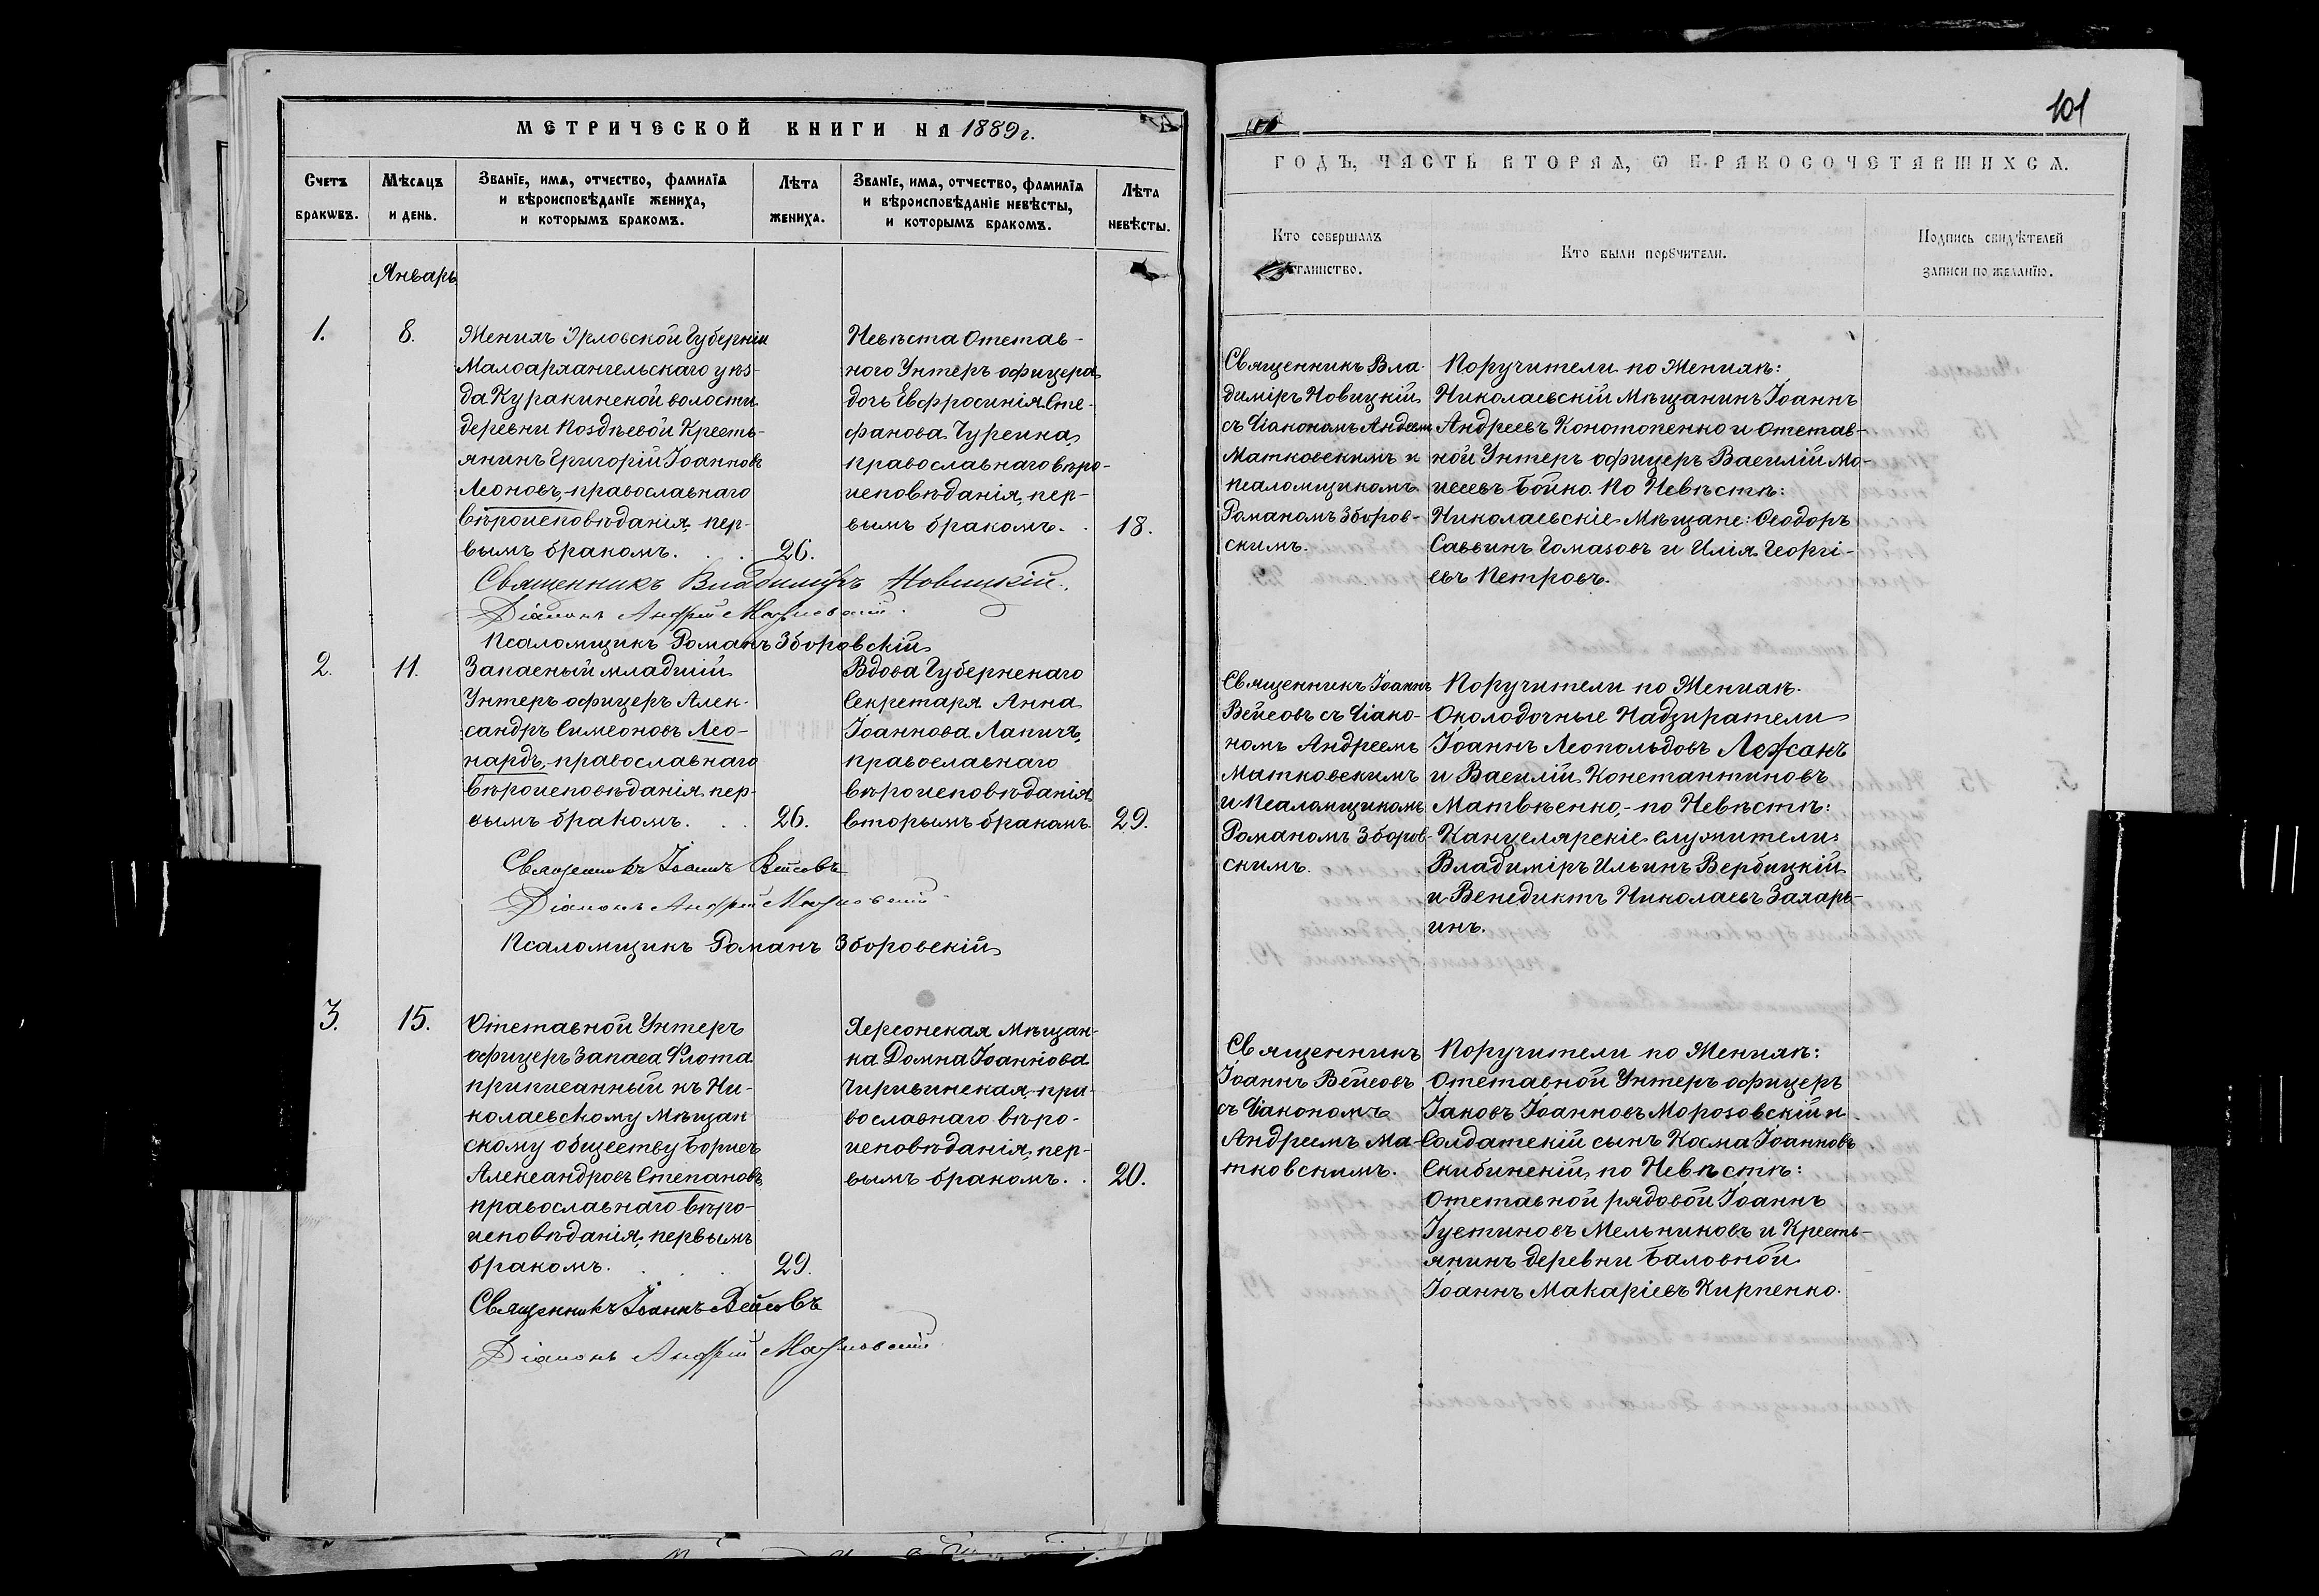 МЕТРИЧЕСКОЙ КНИГИ НА 1889 г.
Счетъ браковъ.
Мѣсяцъ и день.
Званїе, имя, отчество, фамилїя
и вѣроисповѣданїе жениха,
и которымъ бракомъ.
Лѣта
жениха.
Званїе, имя, отчество, фамилїя
и вѣроисповѣданїе невѣсты,
и которымъ бракомъ.
Лѣта
невѣсты.
Январь
1.
8.
Женихъ Орловской Губерніи
Малоархангельскаго уѣз-
да Куракинской волости
деревни Поздѣевой Кресть-
янинъ Григорій Іоанновъ
Леоновъ, православнаго
вѣроисповѣданія, пер-
вымъ бракомъ. . .
26.
Невѣста Отстав-
ного Унтеръ офицера
дочь Евфросинія Сте-
фанова Чурсина,
православнаго вѣро-
исповѣданія, пер-
вымъ бракомъ. .
18.
Священникъ Владиміръ Новицкій.
Діаконъ Андрей Матковскій.
Псаломщикъ Романъ Зборовскій
2.
11.
Запасный младшій
Унтеръ офицеръ Алек-
сандръ Симеоновъ Лео-
нардъ, православнаго
вѣроисповѣданія пер-
вымъ бракомъ. . .
26.
Вдова Губернскаго
Секретаря Анна
Іоаннова Лапичъ,
православнаго
вѣроисповѣданія
вторымъ бракомъ.
29.
Священникъ Іоаннъ Вейсовъ
Діаконъ Андрей Матковскій
Псаломщикъ Романъ Зборовскій
3.
15.
Отставной Унтеръ
офицеръ запаса Флота
приписанный къ Ни-
колаевскому Мѣщан
скому обществу Борисъ
Александровъ Степановъ,
православнаго вѣро-
исповѣданія, первымъ
бракомъ. . . .
29.
Херсонская Мѣщан-
ка Домна Іоаннова
Чиривинская, пра-
вославнаго вѣро-
исповѣданія, пер-
вымъ бракомъ. .
20.
Священникъ Іоаннъ Вейсовъ
Діаконъ Андрей Матковскій
101
ГОДЪ, ЧАСТЬ ВТОРАЯ, Ѡ БРАКОСОЧЕТАВШИХСЯ.
Кто совершалъ
таинство.
Кто были порꙋчители.
Подпись свидѣтелей
записи по желанїю.
Священникъ Вла-
диміръ Новицкій
съ Діакономъ Андреем
Матковскимъ и
псаломщикомъ
Романомъ Зборов-
скимъ.
Поручители по Женихѣ:
Николаевскій Мѣщанинъ Іоаннъ
Андреевъ Конотопенко и Отстав-
ной Унтеръ офицеръ Василій Мо-
исеевъ Бойко. По Невѣстѣ:
Николаевскіе Мѣщане: Ѳеодоръ
Саввинъ Гомазовъ и Илія Георгі-
евъ Петровъ.
Священникъ Іоаннъ
Вейсовъ съ Діако-
номъ Андреемъ
Матковскимъ
и Псаломщикомъ
Романомъ Зборов-
скимъ.
Поручители по Женихѣ.
Околодочные Надзиратели
Іоаннъ Леопольдовъ Лежанъ
и Василій Константиновъ
Матвѣенко, по Невѣстѣ:
Канцелярскіе служители
Владиміръ Ильинъ Вербицкій
и Венедиктъ Николаевъ Захарь-
инъ.
Священникъ
Іоаннъ Вейсовъ
съ Діакономъ
Андреемъ Ма-
тковскимъ.
Поручители по Женихѣ:
Отставной Унтеръ офицеръ
Іаковъ Іоанновъ Морозовскій и
Солдатскій сынъ Косма Іоанновъ
Скибинскій, по Невѣстѣ:
Отставной рядовой Іоаннъ
Іустиновъ Мельниковъ и Кресть-
янинъ деревни Баловной
Іоаннъ Макаріевъ Кирпенко.